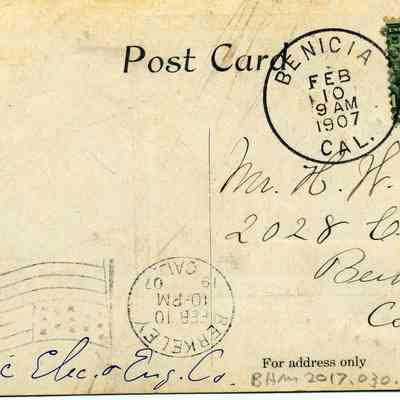 Post Card
BENICIA
FEB
10
9 AM
1907
CAL.
Mr. H. W.
2028 C
Ber
Ca
BERKELEY
CAL.
FEB 10
10-PM
07
c Elec. & Eng. Co.
For address only
BHM 2017.030.